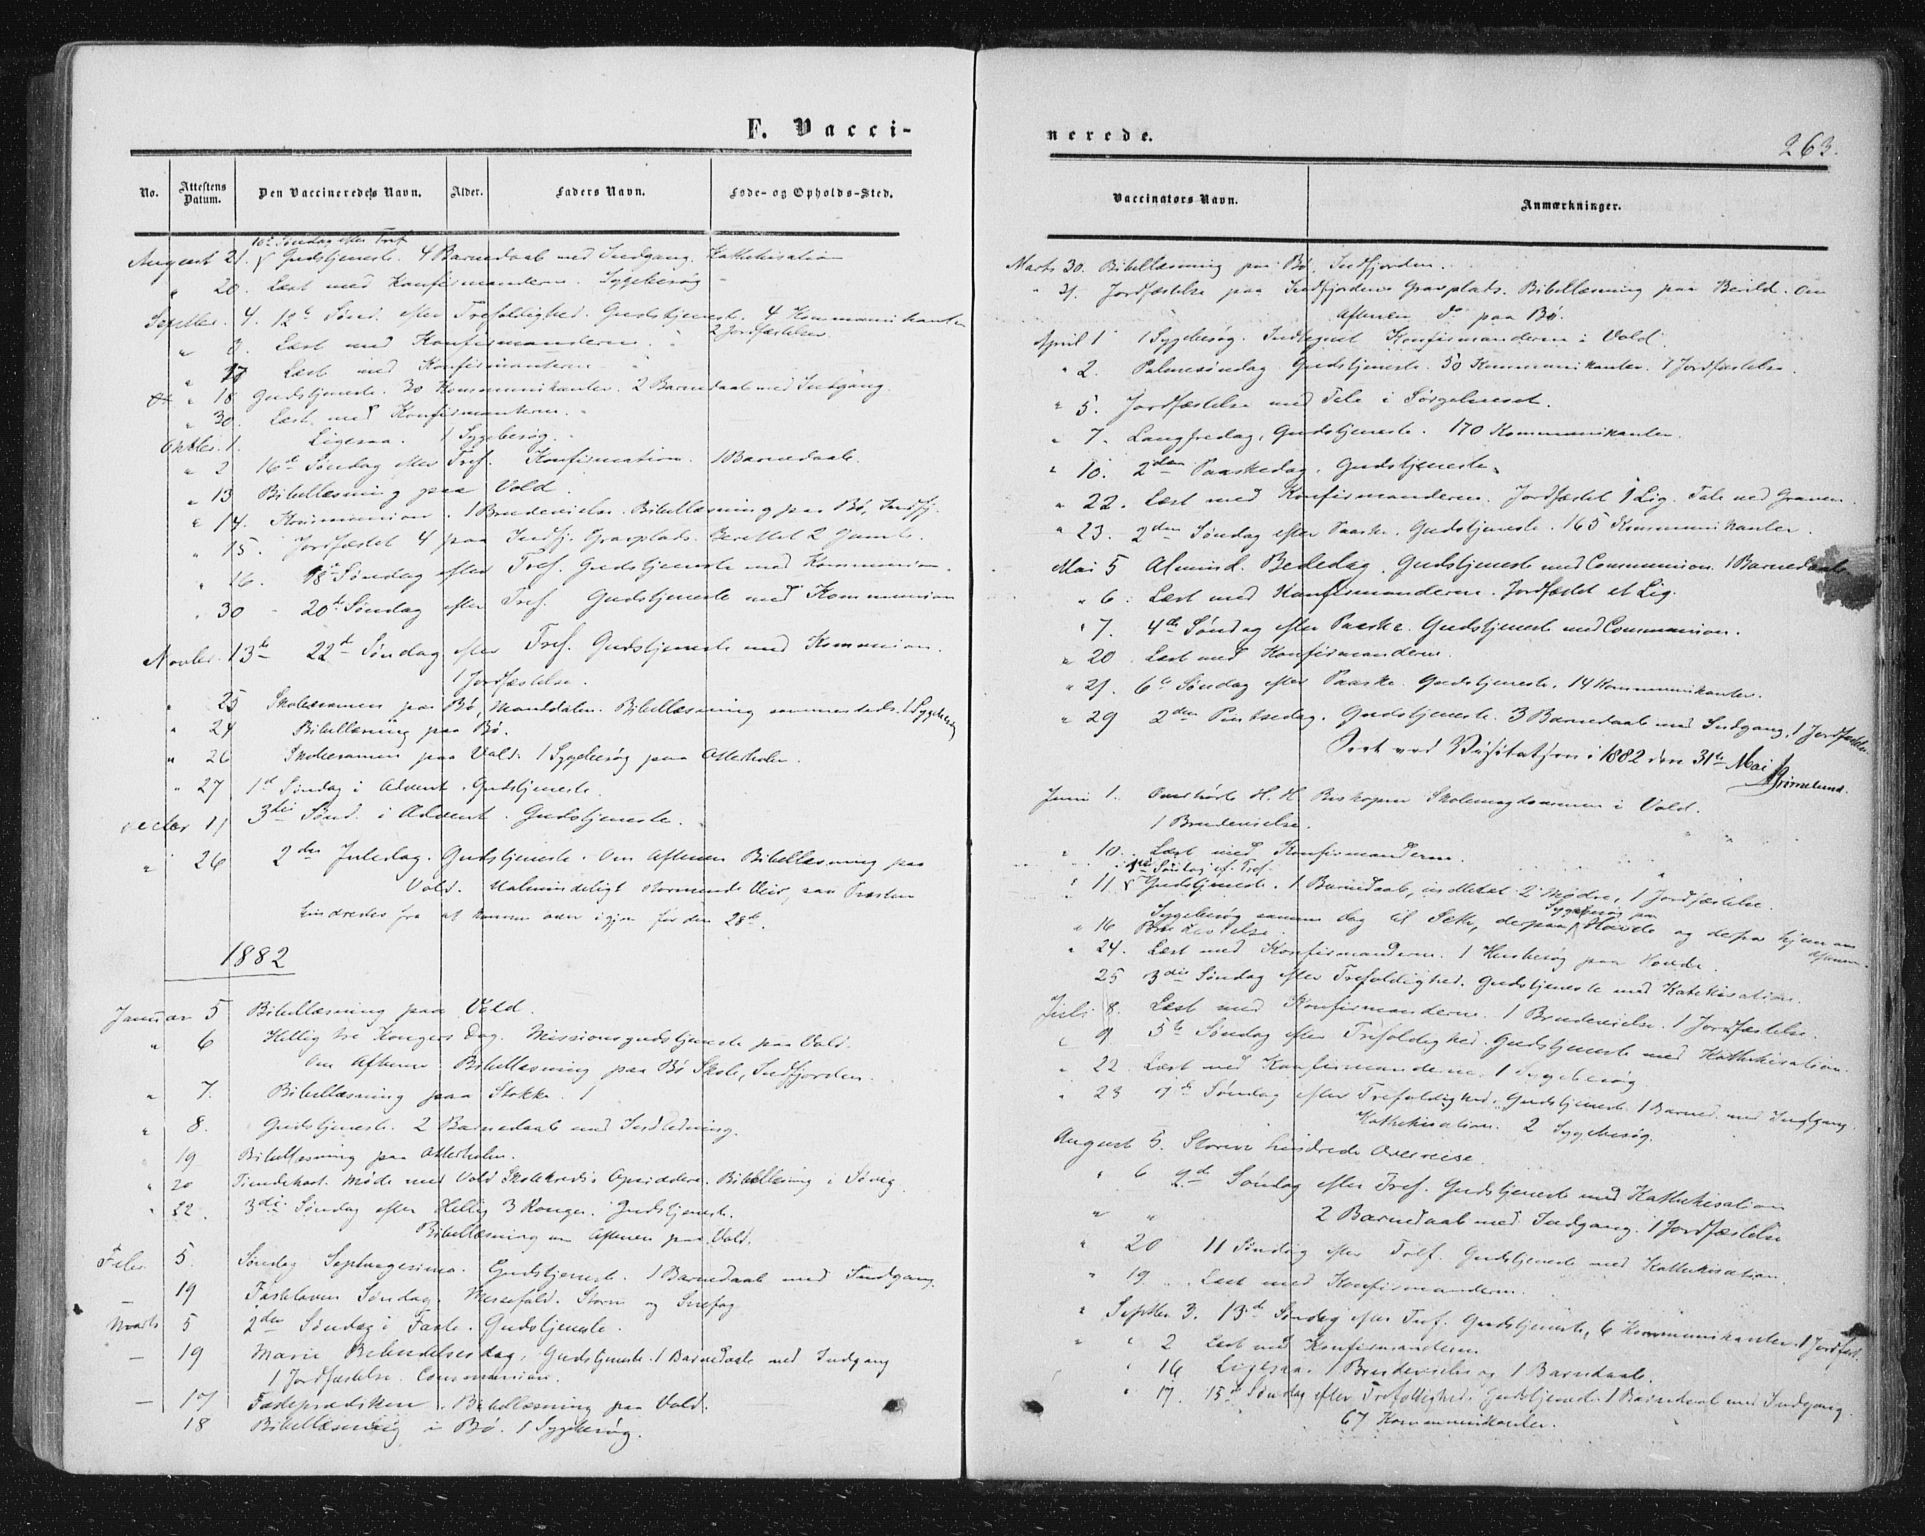 F. Vacci-
No.
Attestens Datum.
Den Vaccineredes Navn.
Alder.
Faders Navn.
Føde- og Opholds-Sted.
10de Søndag efter Tref.
August 21. Gudstjeneste. 4 Barnedaab med Indgang. Kathekisation
" 20. Læst med Konfirmanderne. Sygebesøg
Septbr. 4. 12te Sønd. efter Trefoldighed. Gudstjeneste. 4 Kommunikanter
2 Jordfæstelser
" Læst med Konfirmanderne. "
" 17 Læst med Konfirmanterne "
" 18 Gudstjeneste. 30 Kommunikanter. 2 Barnedaab med Indgang.
" 30. Læst med Konfirmanterne. "
Oktbr. 1. Ligesaa. 1 Sygebesøg.
" 2 16de Søndag efter Tref. Konfirmation. 1 Barnedaab.
" 13 Bibellæsning paa Vold.
" 14. Kommunion. 1 Brudevielse. Bibellæsning paa Bø, Indfj.
" 15. Jordfæstet 4 paa Indfj. Gravplads. Berettet 2 Gamle.
" 16. 18de Søndag efter Tref. Gudstjeneste med Kommunion.
" 30 20de Søndag efter Tref. Gudstjeneste med Kommunion
Novbr. 13de 22de Søndag efter Tref. Gudstjeneste med Kommunion.
1 Jordfæstelse.
" 25 Skoleexamen paa Bø, Manddalen. Bibellæsning sammesteds. 1 Sygebesøg
" 24 Bibellæsning paa Bø.
" 26 Skoleexamen paa Vold. 1 Sygebesøg paa
" 27 1ste Søndag i Advent. Gudstjeneste.
Decbr 11 3die Sønd. i Advent. Gudstjeneste.
" 26 2den Juledag. Gudstjeneste. Om Aftenen Bibellæsning paa
Vold. Ualmindeligt stormende Veir, saa Præsten
hindredes fra at komme over igjen før den 28de.
1882
Januar 5 Bibellæsning paa Vold.
" 6 Hellig tre Kongers Dag. Missionsgudstjeneste paa Vold.
Om Aftenen Bibellæsning paa Bø Skole, Indfjorden.
" 7. Bibellæsning paa Stokke. 1
" 8. Gudstjeneste. 2 Barnedaab med Indledning.
" 19 Bibellæsning paa
" 20 Møde med Vold Skolekreds's Opsiddere. Bibellæsning i
" 22. 3die Søndag efter Hellig 3 Konger. Gudstjeneste.
Bibellæsning om Aftenen paa Vold.
Febr. 5. Søndag Septuagesima. Gudstjeneste. 1 Barnedaab med Indgang.
19 Fastelavns Søndag. Messefald. Storm og Snefog
Marts 5 2den Søndag i Faste. Gudstjeneste.
— 19 Marie Bebudelsesdag. Gudstjeneste. 1 Barnedaab med Indgang
1 Jordfæstelse. Communion.
— 17 Fasteprædiken. Bibellæsning paa Vold.
18 Bibellæsning i Bø. 1 Sygebesøg.
nerede.
263.
Vaccinators Navn.
Anmærkninger.
Marts 30. Bibellæsning paa Bø, Indfjorden.
" 31. Jordfæstelse paa Indfjordens Gravplads. Bibellæsning paa Berild. Om
Aftenen do paa Bø.
April 1 1 Sygebesøg. Indtegnet Konfirmanderne i Vold.
" 2. Palmesøndag Gudstjeneste. 50 Kommunikanter. 1 Jordfæstelse.
" 5. Jordfæstelse med Tale i Sørgehuset.
" 7. Langfredag, Gudstjeneste. 170 Kommunikanter.
" 10. 2den Paaskedag. Gudstjeneste.
" 22. Læst med Konfirmanderne. Jordfæstet 1 Lig. Tale ved Graven
" 23. 2den Søndag efter Paaske. Gudstjeneste. 165 Kommunikanter.
Mai 5 Almind. Bededag. Gudstjeneste med Communion. 1 Barnedaab
" 6. Læst med Konfirmanderne. Jordfæstet et Lig.
" 7. 4de Søndag efter Paaske. Gudstjeneste med Communion.
" 20 Læst med Konfirmanderne.
" 21. 6te Søndag efter Paaske. Gudstjeneste. 14 Kommunikanter.
" 29 2den Pintsedag. Gudstjeneste. 3 Barnedaab med Indgang, 1 Jordfæstelse
Seet ved Visitatsen i 1882 den 31te Mai Grimelund.
Juni 1. Overhørte H. H. Biskopen Skoleungdommen i Vold.
1 Brudevielse.
" 10. Læst med Konfirmanderne.
1ste Søndag ef. Tref.
" 11 Gudstjeneste. 1 Barnedaab, indledet 2 Mødre, 1 Jordfæstelse.
Sygebesøg samme dag til Sæth, derpaa Sygebesøg paa Hovde og derfra hjem om Aftenen.
" 16 Brudevielse.
" 24. Læst med Konfirmanderne. 1 Husbesøg paa Hovde.
25 3die Søndag efter Trefoldighed. Gudstjeneste med Katekisation.
Juli 8. Læst med Konfirmanderne. 1 Brudevielse. 1 Jordfæstelse.
" 9 5te Søndag efter Trefoldighed. Gudstjeneste med Kathekisation.
" 22. Læst med Konfirmanderne. 1 Sygebesøg
" 23 7de Søndag efter Trefoldighed. Gudstjeneste. 1 Barned. med Indgang.
Kathekisation. 2 Sygebesøg.
August 5. Storm hindrede Overreise.
" 6 9de Søndag efter Tref. Gudstjeneste med Kathekisation
" " 2 Barnedaab med Indgang. 1 Jordfæstelse
" 20 11 Søndag efter Tref. Gudstjeneste med Kathekisation.
" 19. Læst med Konfirmanderne.
" Septbr 3. 13de Søndag efter Tref. Gudstjeneste, 6 Kommunikanter, 1 Jordfæst.
" " 2 Læst med Konfirmanderne
" 16 Ligesaa. 1 Brudevielse og 1 Barnedaab.
" 17. 15de Søndag efter Trefoldighed. Gudstjeneste. 1 Barnedaab med Indgang.
67 Kommunikanter.